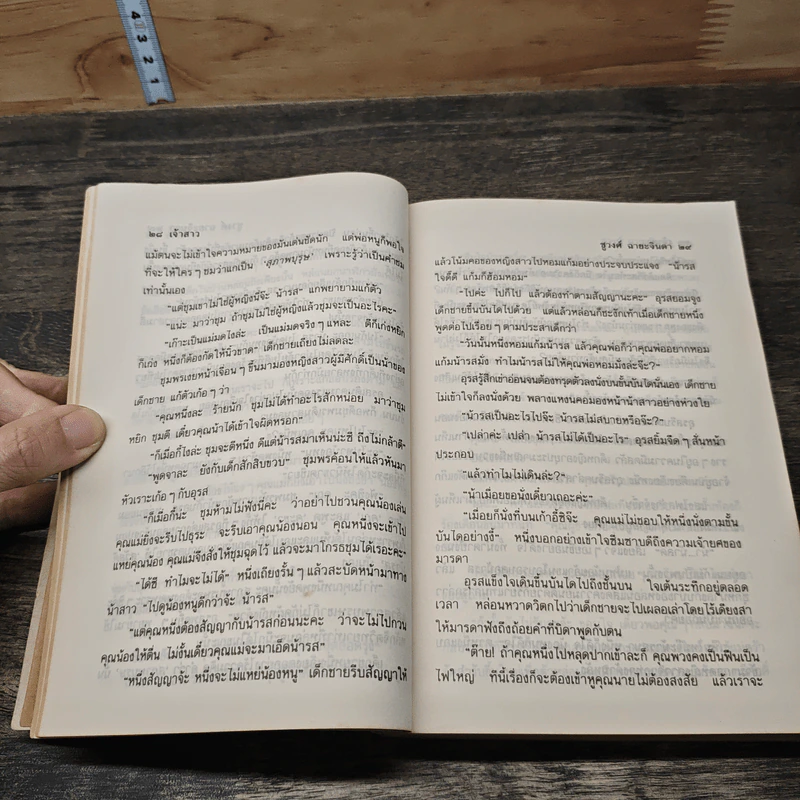 ๒๘ เจ้าสาว
แม้ตนจะไม่เข้าใจความหมายของมันเด่นชัดนัก แต่พ่อหนูก็พอใจ
ที่จะให้ใคร ๆ ชมว่าแกเป็น ‘สุภาพบุรุษ’ เพราะรู้ว่าเป็นคำชม
เท่านั้นเอง
“แต่ชุมเขาไม่ใช่ผู้หญิงนี่จ๊ะ น้ารส” แกพยายามแก้ตัว
“แน่ะ มาว่าชุม ถ้าชุมไม่ใช่ผู้หญิงแล้วชุมจะเป็นอะไรคะ”
“เก๊าะเป็นแม่มดไงล่ะ เป็นแม่มดจริง ๆ แหละ ตีก็เก่งหยิก
ก็เก่ง หนึ่งก็ต้องกัดให้นิ้วขาด” เด็กชายเถียงไม่ลดละ
ชุมพรเงยหน้าเจื่อน ๆ ขึ้นมามองหญิงสาวผู้มีศักดิ์เป็นน้าของ
เด็กชาย แก้ตัวเก้อ ๆ ว่า
“คุณหนึ่งละ ร้ายนัก ชุมไม่ได้ทำอะไรสักหน่อย มาว่าชุม
หยิก ชุมตี เดี๋ยวคุณน้าได้เข้าใจผิดหรอก”
“ก็เมื่อกี้ไงล่ะ ชุมจะตีหนึ่ง ดีแต่น้ารสมาเห็นน่ะซี ถึงไม่กล้าตี”
“พูดจาละ ยังกับเด็กสักสิบขวบ” ชุมพรค้อนให้แล้วหันมา
หัวเราะเก้อ ๆ กับอุรส
“ก็เมื่อกี้น่ะ ชุมห้ามไม่ฟังนี่คะ ว่าอย่าไปชวนคุณน้องเล่น
คุณแม่ยิ่งจะรีบไปธุระ จะรีบเอาคุณน้องนอน คุณหนึ่งจะเข้าไป
แหย่คุณน้อง คุณแม่จึงสั่งให้ชุมฉุดไว้ แล้วจะมาโกรธชุมได้เรอะคะ”
“ได้ซี ทำไมจะไม่ได้” หนึ่งเถียงรั้น ๆ แล้วสะบัดหน้ามาทาง
น้าสาว “ไปดูน้องหนูดีกว่าจ้ะ น้ารส”
“แต่คุณหนึ่งต้องสัญญากับน้ารสก่อนนะคะ ว่าจะไม่ไปกวน
คุณน้องให้ตื่น ไม่งั้นเดี๋ยวคุณแม่จะมาเอ็ดน้ารส”
“หนึ่งสัญญาจ้ะ หนึ่งจะไม่แหย่น้องหนู” เด็กชายรีบสัญญาให้
ชูวงศ์ ฉายะจินดา ๒๙
แล้วโน้มคอของหญิงสาวไปหอมแก้มอย่างประจบประแจง “น้ารส
ใจดี๊ดี แก้มก็ฮ้อมหอม”
“ไปค่ะ ไปก็ไป แล้วต้องทำตามสัญญานะคะ” อุรสยอมจูง
เด็กชายขึ้นบันไดไปด้วย แต่แล้วหล่อนก็ชะงักเท้าเมื่อเด็กชายหนึ่ง
พูดต่อไปเรื่อย ๆ ตามประสาเด็กว่า
“วันนั้นหนึ่งหอมแก้มน้ารส แล้วคุณพ่อก็ว่าคุณพ่ออยากหอม
แก้มน้ารสมั่ง ทำไมน้ารสไม่ให้คุณพ่อหอมมั่งล่ะจ๊ะ?”
อุรสรู้สึกเข่าอ่อนจนต้องทรุดตัวลงนั่งบนขั้นบันไดนั่นเอง เด็กชาย
ไม่เข้าใจก็ลงนั่งด้วย พลางแหงนคอมองหน้าน้าสาวอย่างห่วงใย
“น้ารสเป็นอะไรไปจ๊ะ น้ารสไม่สบายหรือจ๊ะ?”
“เปล่าค่ะ เปล่า น้ารสไม่ได้เป็นอะไร” อุรสยิ้มจืด ๆ สั่นหน้า
ประกอบ
“แล้วทำไมไม่เดินล่ะ?”
“น้าเมื่อยขอนั่งเดี๋ยวเถอะค่ะ”
“เมื่อยก็นั่งที่บนเก้าอี้ซิจ๊ะ คุณแม่ไม่ชอบให้หนึ่งนั่งตามขั้น
บันไดอย่างงี้” หนึ่งบอกอย่างเข้าใจซึมซาบดีถึงความเจ้ายศของ
มารดา
อุรสแข็งใจเดินขึ้นบันไดไปถึงชั้นบน ใจเต้นระทึกอยู่ตลอด
เวลา หล่อนหวาดวิตกไปว่าเด็กชายจะไปเผลอเล่าโดยไร้เดียงสา
ให้มารดาฟังถึงถ้อยคำที่บิดาพูดกับตน
“ต๊าย! ถ้าคุณหนึ่งไปหลุดปากเข้าละก็ คุณพวงคงเป็นฟืนเป็น
ไฟใหญ่ ทีนี้เรื่องก็จะต้องเข้าหูคุณนายไม่ต้องสงสัย แล้วเราจะ
4 3 2 1